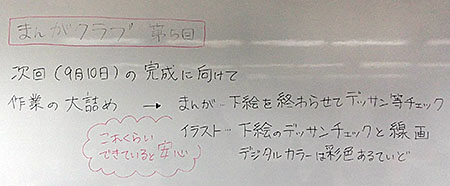 まんがクラブ 第5回
次回（9月10日）の完成に向けて
作業の大詰め → まんが…下絵を終わらせてデッサン等チェック
イラスト…下絵のデッサンチェックと線画
デジタルカラーは彩色あるていど
これくらい
できていると安心